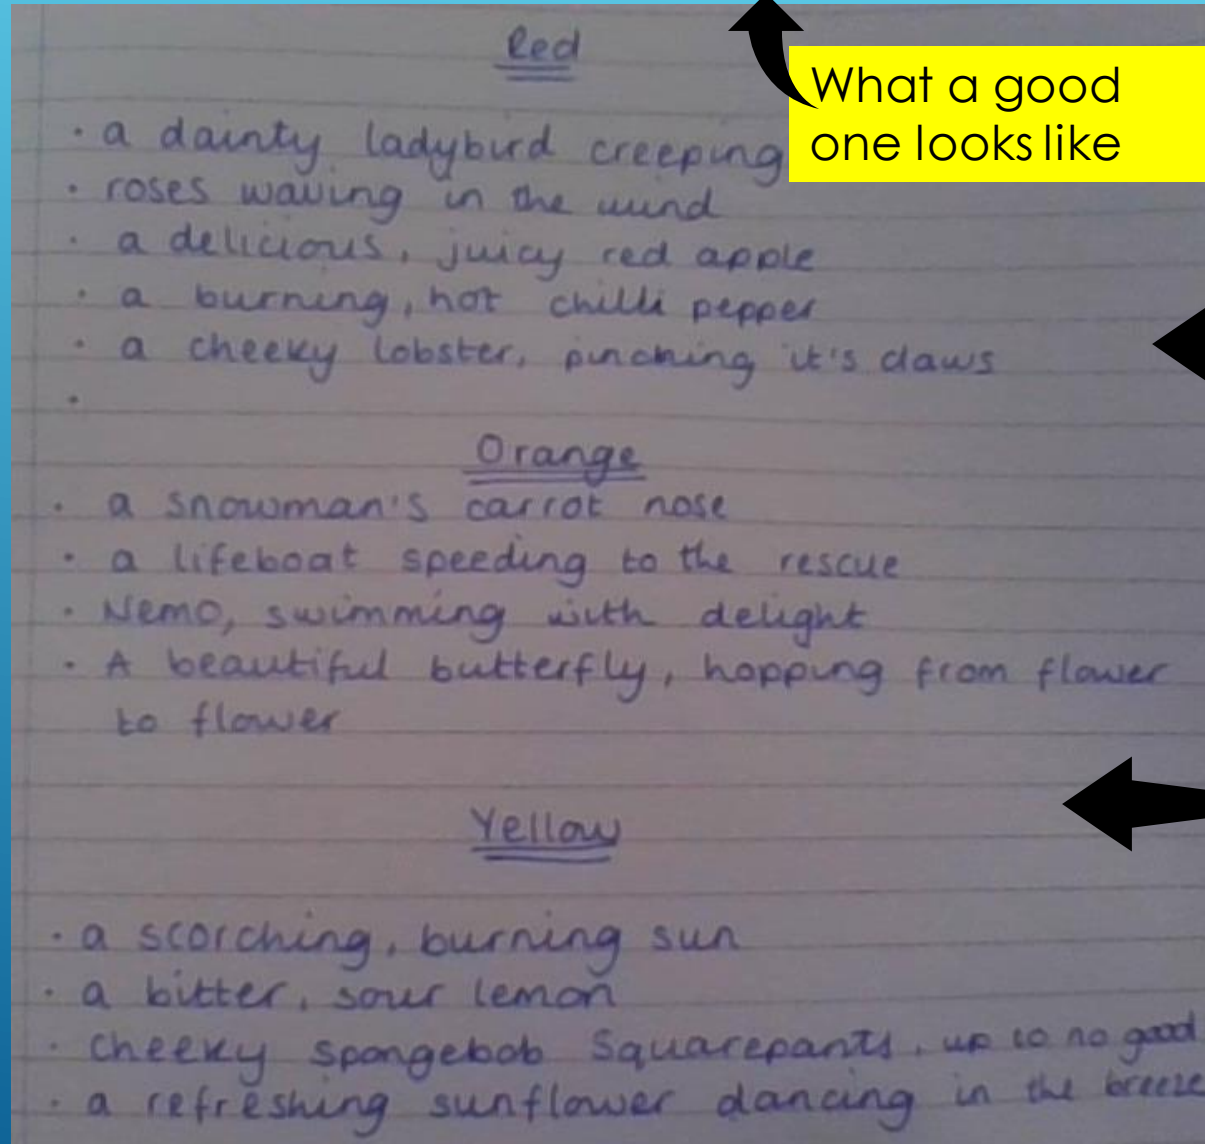 Red
What a good
one looks like
· a dainty ladybird creeping
· roses waving in the wind
· a delicious, juicy red apple
· a burning, hot chilli pepper
· a cheeky lobster, pinching it's claws
·
Orange
· a snowman's carrot nose
· a lifeboat speeding to the rescue
· Nemo, swimming with delight
· A beautiful butterfly, hopping from flower
to flower
Yellow
· a scorching, burning sun
· a bitter, sour lemon
· cheeky spongebob Squarepants, up to no good
· a refreshing sunflower dancing in the breeze